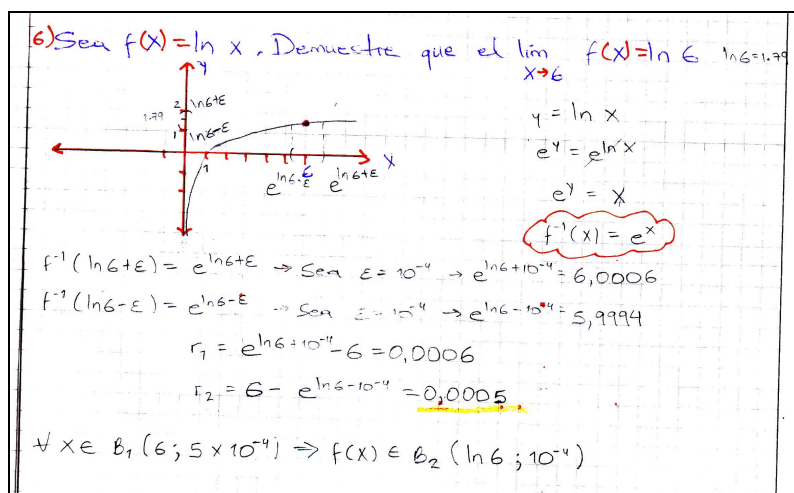 6) Sea f(x) = ln x. Demuestre que el lim f(x) = ln 6 ln6=1.79
x→6
y
2 ln6+ε
1.79
1 ln6-ε
1
x
6
e^ln6-ε e^ln6+ε
y = ln x
e^y = e^ln x
e^y = x
f⁻¹(x) = e^x
f⁻¹(ln6+ε) = e^ln6+ε → Sea ε = 10⁻⁴ → e^ln6+10⁻⁴ = 6,0006
f⁻¹(ln6-ε) = e^ln6-ε → Sea ε = 10⁻⁴ → e^ln6-10⁻⁴ = 5,9994
r₁ = e^ln6+10⁻⁴ - 6 = 0,0006
r₂ = 6 - e^ln6-10⁻⁴ = 0,0005
∀ x ∈ B₁ (6; 5 x 10⁻⁴) ⇒ f(x) ∈ B₂ (ln 6; 10⁻⁴)